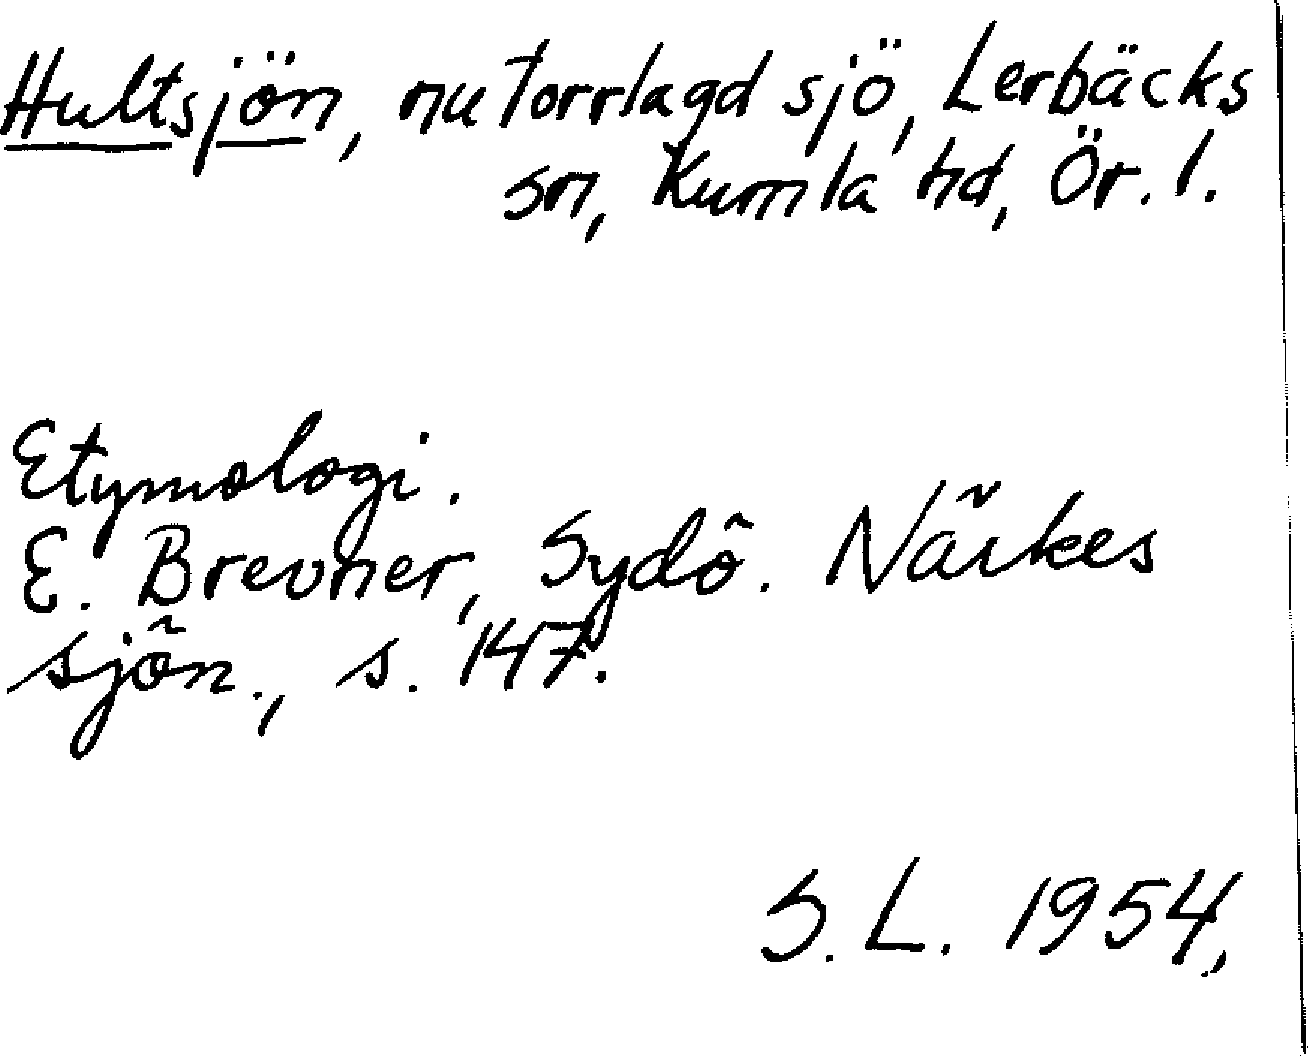 Hultsjön, nu torrlagd sjö, Lerbäcks
sn, Kumla hd, Ör. l.
Etymologi.
E. Brevner, Sydö. Närkes
sjön., s. 147.
S. L. 1954.